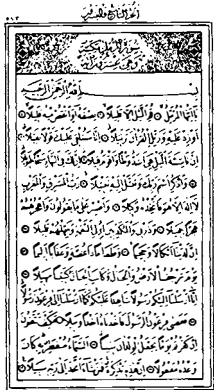 الجزء التاسع والعشرون
٥١٣
بسم الله الرحمن الرحيم
يا أيها المزمل قم الليل إلا قليلا نصفه أو انقص منه قليلا
أو زد عليه ورتل القرآن ترتيلا إنا سنلقي عليك قولا ثقيلا
إن ناشئة الليل هي أشد وطأ وأقوم قيلا إن لك في النهار سبحا طويلا
واذكر اسم ربك وتبتل إليه تبتيلا رب المشرق والمغرب
لا إله إلا هو فاتخذه وكيلا واصبر على ما يقولون واهجرهم
هجرا جميلا وذرني والمكذبين أولي النعمة ومهلهم قليلا
إن لدينا أنكالا وجحيما وطعاما ذا غصة وعذابا أليما
يوم ترجف الأرض والجبال وكانت الجبال كثيبا مهيلا
إنا أرسلنا إليكم رسولا شاهدا عليكم كما أرسلنا إلى فرعون رسولا
فعصى فرعون الرسول فأخذناه أخذا وبيلا فكيف تتقون
إن كفرتم يوما يجعل الولدان شيبا السماء منفطر به كان
وعده مفعولا إن هذه تذكرة فمن شاء اتخذ إلى ربه سبيلا